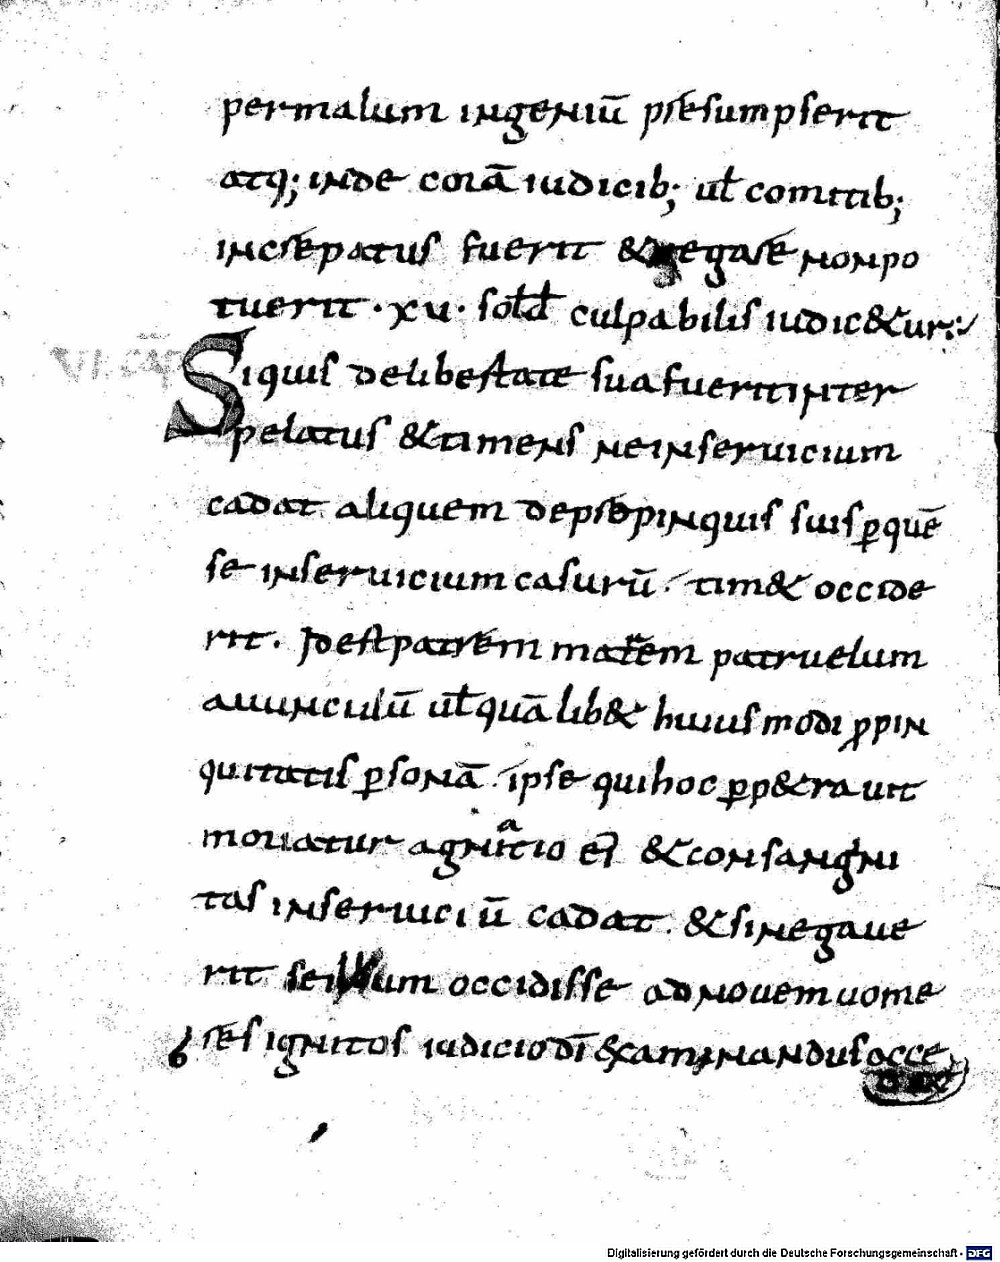 per malum ingeniū presumpserit
atq; inde corā iudicib; ut comitib;
increpatus fuerit & negare non po
tuerit · xu · sold culpabilis iudic&ur:
VI CAP Siquis de libertate sua fuerit inter
pelatus & timens ne inseruicium
cadat aliquem de propinquis suis p quē
se inseruicium casurū tim& occide
rit. Id est patrem matrem patruelum
auunculū ut quālib& huius modi ppin
quitatis psonā ipse qui hoc pp&rauit
moriatur agnatio ei & consangni
tas inseruiciū cadat. & si negaue
rit se illum occidisse ad nouem uome
res ignitos iudicio dī examinandus acce
dat
Digitalisierung gefördert durch die Deutsche Forschungsgemeinschaft - DFG